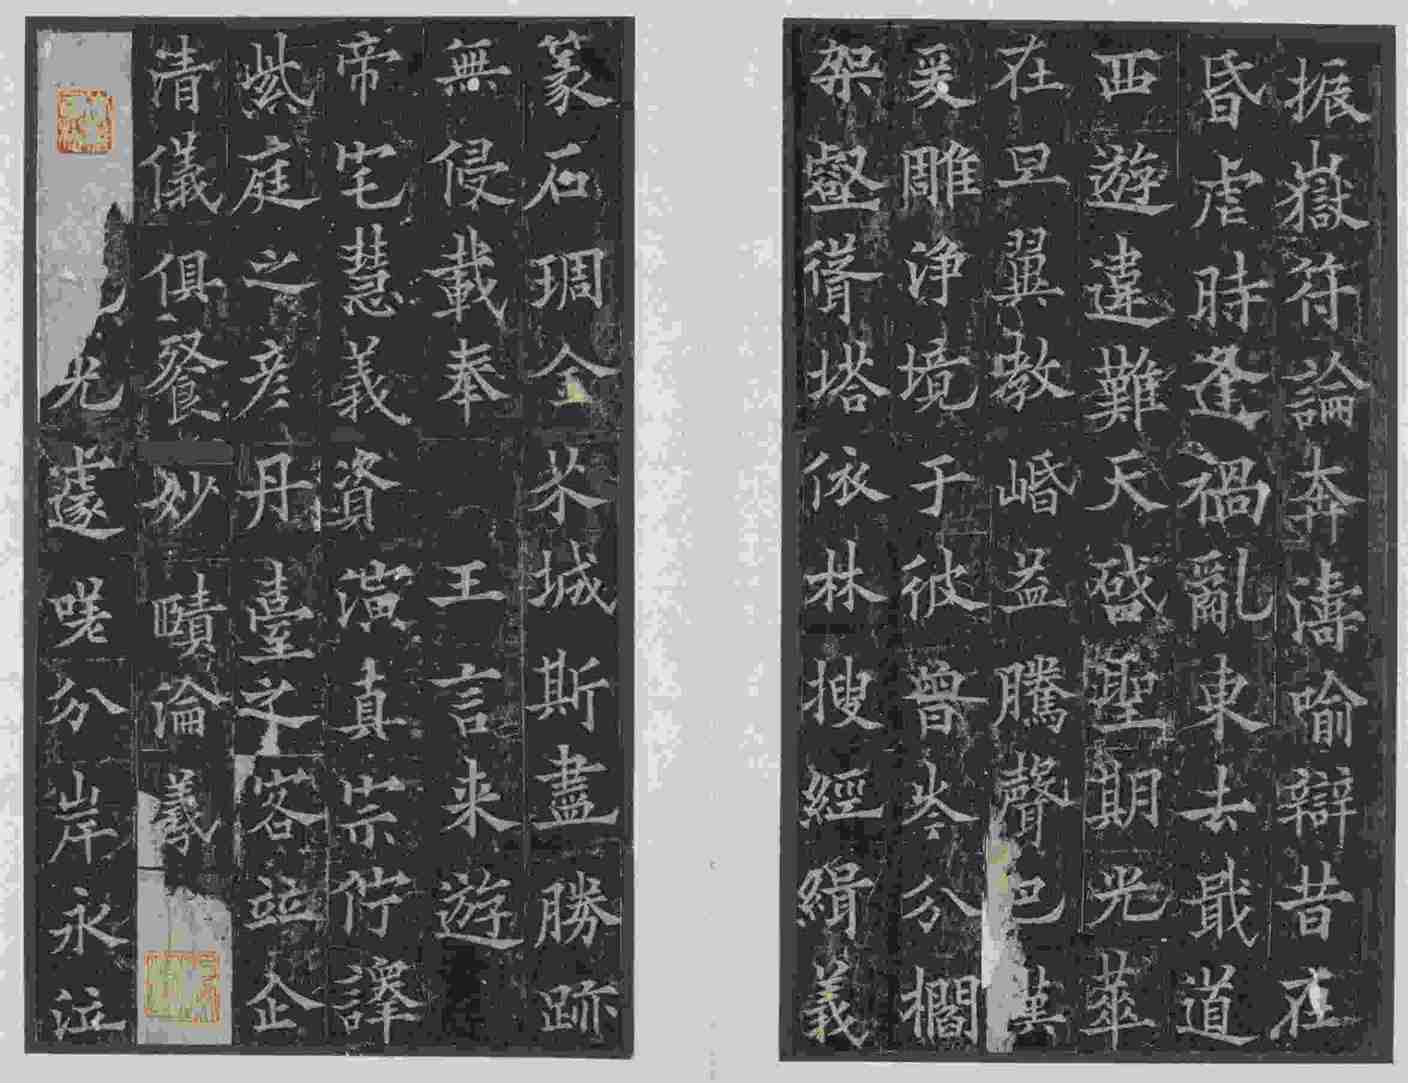 振嶽符論奔濤喻辯昔在
昏虐時逢禍亂東去戢道
西遊違難天啓聖期光華
在旦翼教緡益騰聲巴漢
爰雕淨境于彼曾岑分櫩
架壑膋塔依林搜經緝義
篆石琱金芥城斯盡勝跡
無侵載奉王言来遊
帝宅慧義資演真宗佇譯
紫庭之彦丹臺之客竝企
清儀俱餐妙賾淪羲
光遽嗟分岸永泣